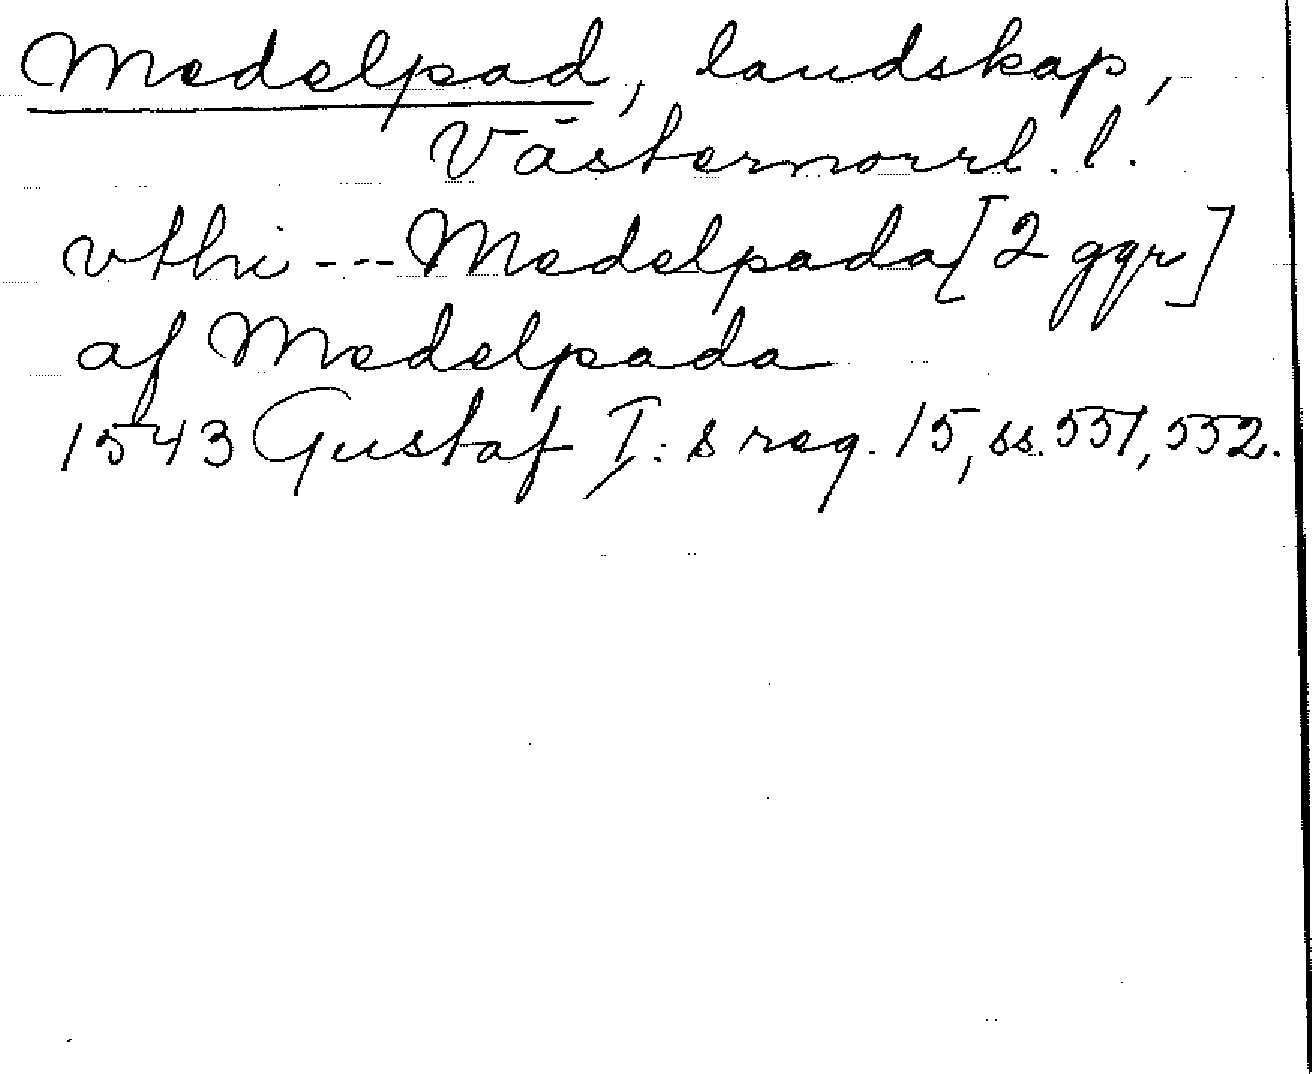 Medelpad, landskap,
Västernorrl. l.
vthi --- Medelpada [2 ggr]
af Medelpada
1543 Gustaf I: s reg. 15, ss. 551, 552.